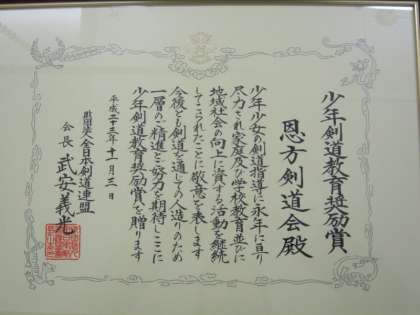 少年剣道教育奨励賞
恩方剣道会殿
少年少女の剣道指導に永年に亘り
尽力され家庭及び学校教育並びに
地域社会の向上に資する活動を継続
してこられたことに敬意を表します
今後とも剣道を通しての人造りのため
一層のご精進と努力を期待しここに
少年剣道教育奨励賞を贈ります
平成二十三年十一月三日
財団法人全日本剣道連盟
会長 武安義光